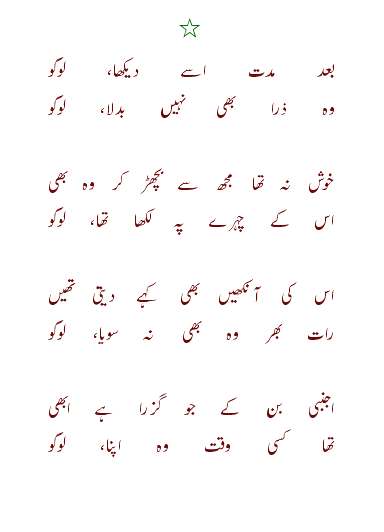 بعد مدت اسے دیکھا، لوگو
وہ ذرا بھی نہیں بدلا، لوگو
خوش نہ تھا مجھ سے بچھڑ کر وہ بھی
اس کے چہرے پہ لکھا تھا، لوگو
اس کی آنکھیں بھی کہے دیتی تھیں
رات بھر وہ بھی نہ سویا، لوگو
اجنبی بن کے جو گزرا ہے ابھی
تھا کسی وقت وہ اپنا، لوگو